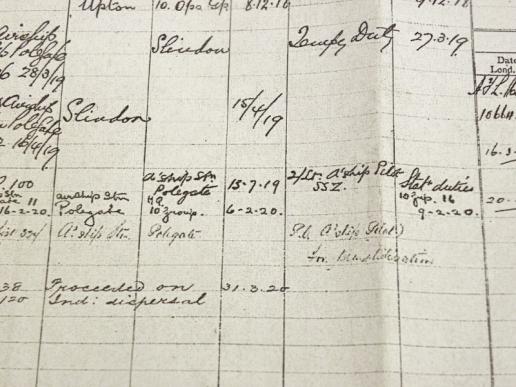 Upton 10. Ops Gp 8.12.18 9.12.18
Airship
Polegate Slindon Tempy Duty 27.3.19
28/3/19
Date
Lond.
Airship Slindon 15/4/19
Polegate
16/4/19
16.3.
P. 100 A'ship Stn. 15-7-19 2/Lt. A'ship Pilot Stat. duties
Stn airship Stn Polegate SSZ. 10 gp. 16
11 HQ 20.
16-2-20. Polegate 10 group. 6-2-20. 9-2-20.
List A'ship Stn. Polegate P.b. (A'ship Pilot)
for
38 Proceeded on 31.3.20
120 Ind: dispersal